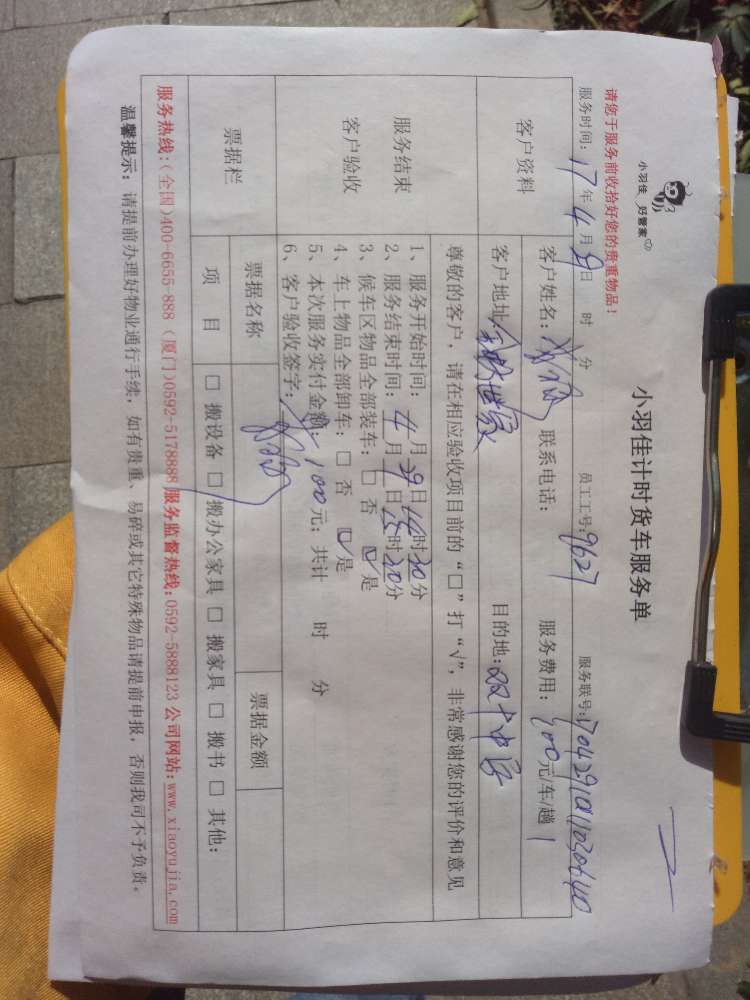 小羽佳 好管家
小羽佳计时货车服务单
请您于服务前收拾好您的贵重物品！
服务时间：17年4月9日 时 分 员工工号：9627 服务联号：
客户资料
客户姓名： 联系电话： 服务费用：100元/车/趟
客户地址： 世家 目的地：双十中学
尊敬的客户，请在相应验收项目前的“□”打“√”，非常感谢您的评价和意见
服务结束
客户验收
1、服务开始时间：4月29日14时30分
2、服务结束时间：4月29日15时20分
3、候车区物品全部装车：□ 否 ☑是
4、车上物品全部卸车：□ 否 ☑是
5、本次服务实付金额：100元；共计 时 分
6、客户验收签字：
票据栏
票据名称
票据金额
项 目
□ 搬设备 □ 搬办公家具 □ 搬家具 □ 搬书 □ 其他：
服务热线：(全国)400-6655-888 (厦门)0592-5178888 服务监督热线：0592-5888123 公司网站：www.xiaoyujia.com
温馨提示：请提前办理好物业通行手续，如有贵重、易碎或其它特殊物品请提前申报，否则我司不予负责。